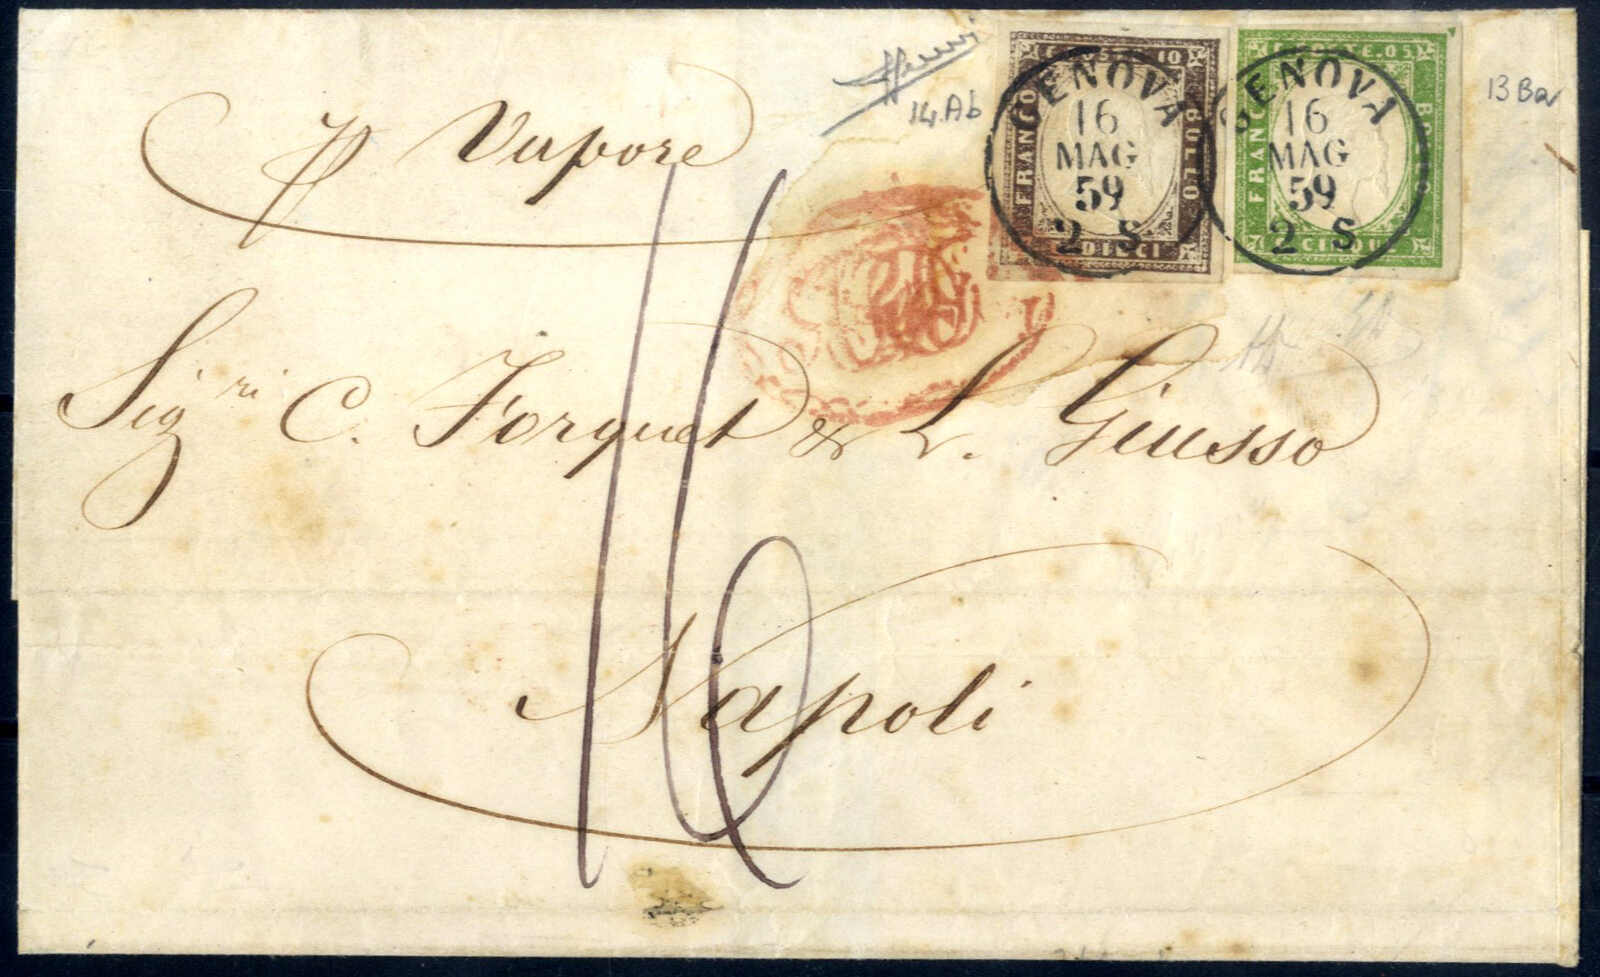 p Vapore
14.Ab
13Ba
C.POSTE.05
FRANCO
BOLLO
DIECI
10
FRANCO
BOLLO
CINQUE
GENOVA
16
MAG
59
2 S
GENOVA
16
MAG
59
2 S
Sig.ri C. Forquet & L. Giusso
16
Napoli